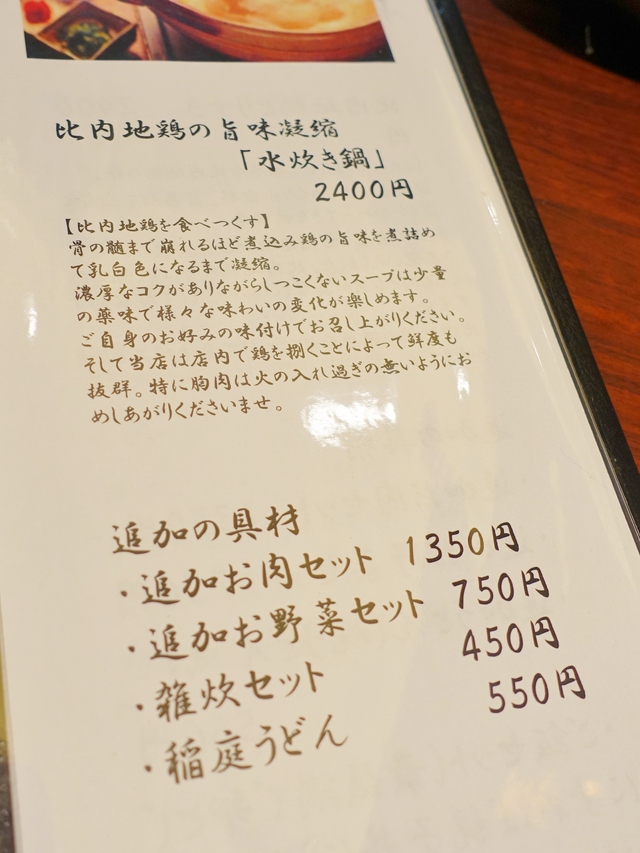 比内地鶏の旨味凝縮
「水炊き鍋」
2400円
【比内地鶏を食べつくす】
骨の髄まで崩れるほど煮込み鶏の旨味を煮詰め
て乳白色になるまで凝縮。
濃厚なコクがありながらしつこくないスープは少量
の薬味で様々な味わいの変化が楽しめます。
ご自身のお好みの味付けでお召し上がりください。
そして当店は店内で鶏を捌くことによって鮮度も
抜群。特に胸肉は火の入れ過ぎの無いようにお
めしあがりくださいませ。
追加の具材
・追加お肉セット 1350円
・追加お野菜セット 750円
・雑炊セット 450円
・稲庭うどん 550円